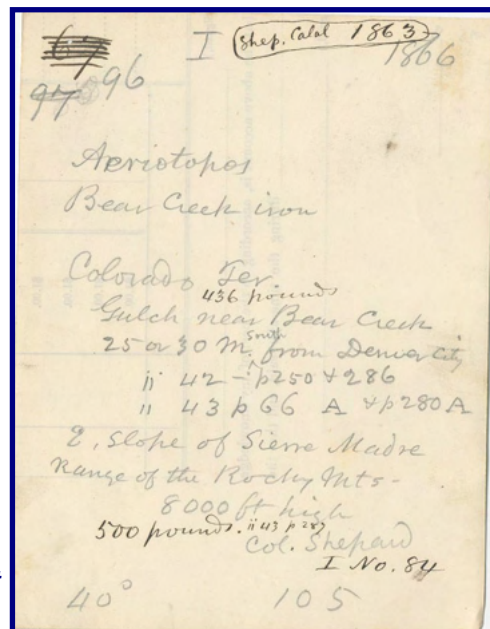 67 I Shep. Catal 1863
97 96 1866
Aeriotopos
Bear Creek iron
Colorado Ter
436 pounds
Gulch near Bear Creek
25 or 30 M. South from Denver City
ii 42 - p250 + 286
ii 43 p 66 A + p280 A
E. Slope of Sierre Madre
Range of the Rocky Mts-
8000 ft high
500 pounds. ii 43 p 287
Col. Shepard
I No. 84
40° 105